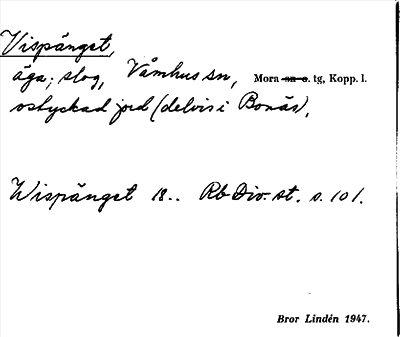 Vispänget,
äga; slog, Våmhus sn, Mora sn o. tg, Kopp. l.
ostyckad jord (delvis i Bonäs),
Wispänget 18.. Rb Div. st. s. 101.
Bror Lindén 1947.